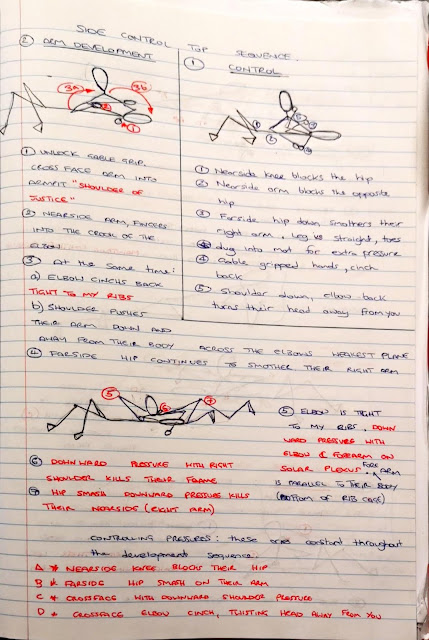 SIDE CONTROL TOP SEQUENCE.
② ARM DEVELOPMENT
3A
3b
②
①
① UNLOCK GABLE GRIP,
CROSS FACE ARM INTO
ARMPIT "SHOULDER OF
JUSTICE"
② NEARSIDE ARM, FINGERS
INTO THE CROOK OF THE
ELBOW
③ At the same time:
a) ELBOW CINCHS BACK
TIGHT TO MY RIBS
b) SHOULDER PUSHES
THEIR ARM DOWN AND
AWAY FROM THEIR BODY ACROSS THE ELBOWS WEAKEST PLANE
④ FARSIDE HIP CONTINUES TO SMOTHER THEIR RIGHT ARM
①
CONTROL
① Nearside knee blocks the hip
② Nearside arm blocks the opposite
hip
③ Farside hip down, smothers their
right arm, leg vs straight, toes
dug into mat for extra pressure
④ Gable gripped hands, cinch
back
⑤ Shoulder down, elbow back
turns their head away from you
⑤
⑥
⑦
⑤ ELBOW IS TIGHT
TO MY RIBS, DOWN
WARD PRESSURE WITH
ELBOW & FOREARM ON
SOLAR PLEXUS. FORE ARM
IS PARALLEL TO THEIR BODY
(BOTTOM OF RIB CAGE)
⑥ DOWNWARD PRESSURE WITH RIGHT
SHOULDER KILLS THEIR FRAME
⑦ HIP SMASH DOWNWARD PRESSURE KILLS
THEIR NEARSIDE (RIGHT ARM)
CONTROLLING PRESSURES: these ones constant throughout
the development sequence:
A * NEARSIDE KNEE BLOCKS THEIR HIP
B * FARSIDE HIP SMASH ON THEIR ARM
C * CROSSFACE WITH DOWNWARD SHOULDER PRESSURE
D * CROSSFACE ELBOW CINCH, TWISTING HEAD AWAY FROM YOU